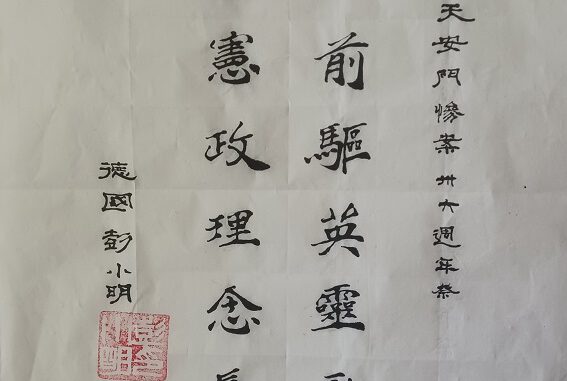 天安門慘案卅六週年祭
前驅英靈
憲政理念
德國彭小明